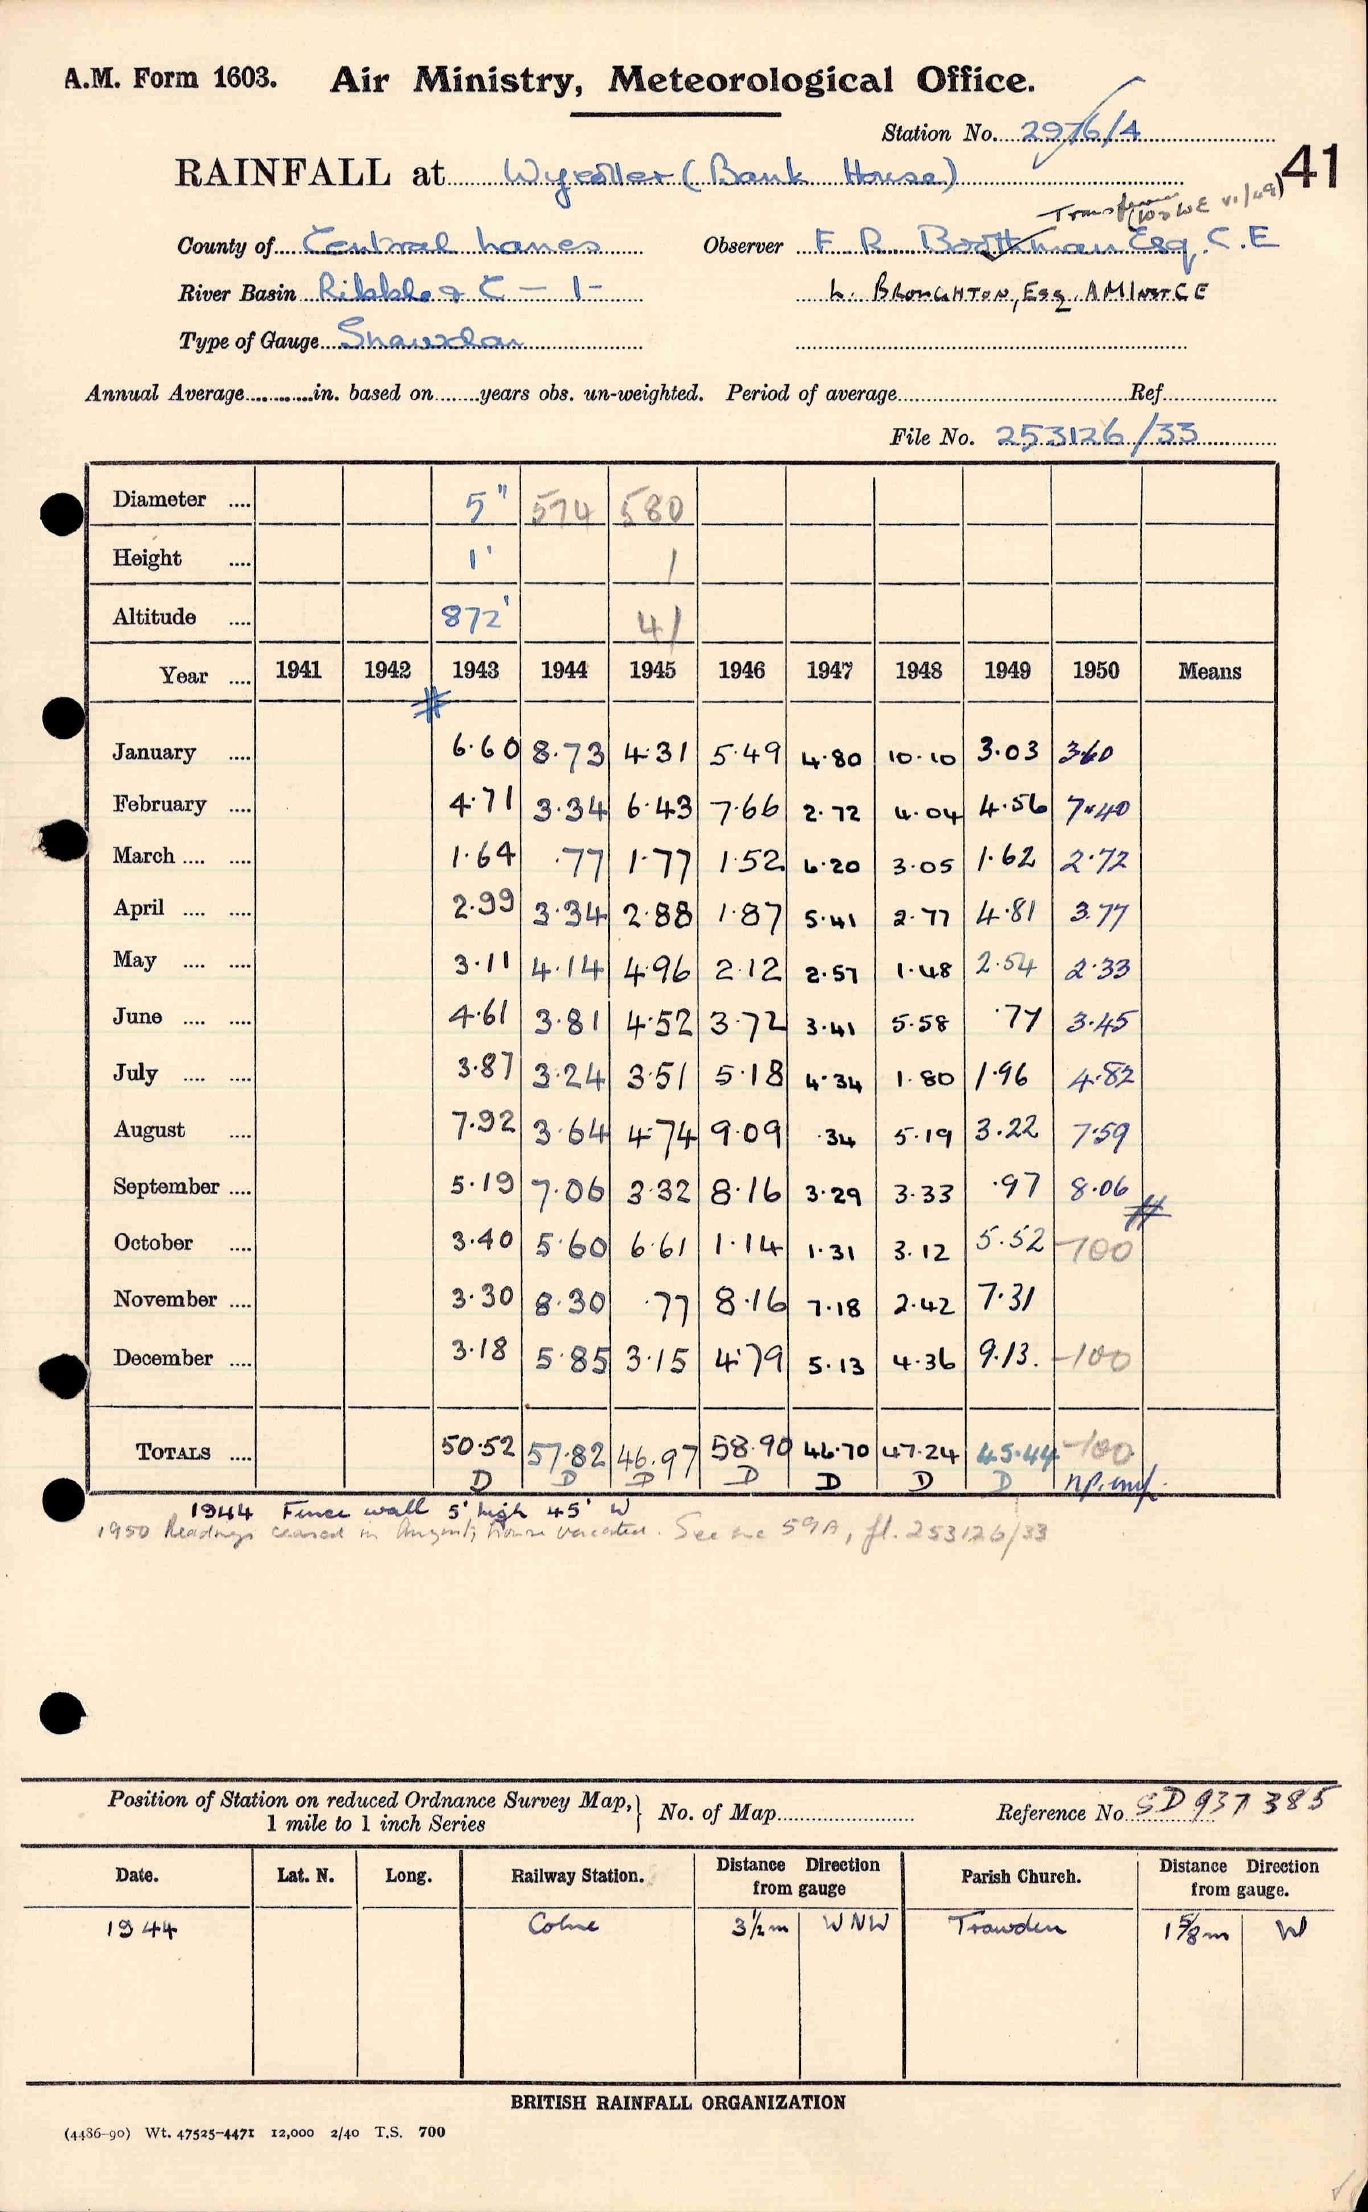 A.M. Form 1603. Air Ministry, Meteorological Office.
Station No. 2976/4
41
RAINFALL at Wycoller (Bank House)
County of Central Lancs Observer F R Boothman Esq. C.E
River Basin Ribble & C - 1 - L. BROUGHTON, Esq. A M INST C E
Type of Gauge Snowdon
Annual Average in. based on years obs. un-weighted. Period of average Ref
File No. 253126/33
Diameter .... 5" 574 580
Height .... 1' 1
Altitude .... 872' 41
Year .... 1941 1942 1943 1944 1945 1946 1947 1948 1949 1950 Means
#
January .... 6.60 8.73 4.31 5.49 4.80 10.10 3.03 3.60
February .... 4.71 3.34 6.43 7.66 2.72 4.04 4.56 7.40
March .... .... 1.64 .77 1.77 1.52 6.20 3.05 1.62 2.72
April .... .... 2.99 3.34 2.88 1.87 5.41 2.77 4.81 3.77
May .... .... 3.11 4.14 4.96 2.12 2.57 1.48 2.54 2.33
June .... .... 4.61 3.81 4.52 3.72 3.41 5.58 .77 3.45
July .... .... 3.87 3.24 3.51 5.18 4.34 1.80 1.96 4.82
August .... 7.92 3.64 4.74 9.09 .34 5.19 3.22 7.59
September .... 5.19 7.06 3.32 8.16 3.29 3.33 .97 8.06
#
October .... 3.40 5.60 6.61 1.14 1.31 3.12 5.52 -100
November .... 3.30 8.30 .77 8.16 7.18 2.42 7.31
December .... 3.18 5.85 3.15 4.79 5.13 4.36 9.13. -100
TOTALS .... 50.52 57.82 46.97 58.90 46.70 47.24 45.44 -100
D D D D D D D
1944 Fence wall 5' high 45' W
1950 Readings ceased in August; house vacated. See me 59A, fl. 253126/33
Position of Station on reduced Ordnance Survey Map, } No. of Map Reference No. SD 937 385
1 mile to 1 inch Series
Date. Lat. N. Long. Railway Station. Distance Direction from gauge Parish Church. Distance Direction from gauge.
1944 Colne 3½m WNW Trawden 1⅝m W
BRITISH RAINFALL ORGANIZATION
(4486-90) Wt. 47525-4471 12,000 2/40 T.S. 700